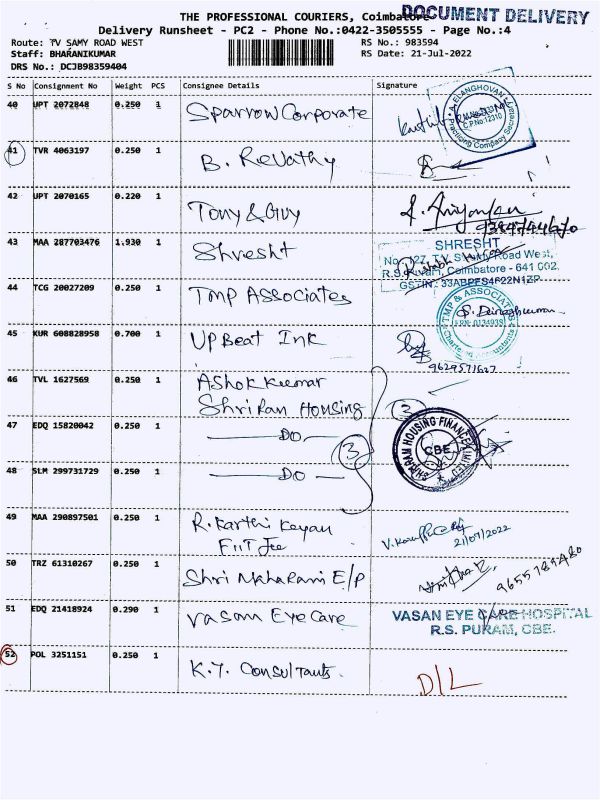 THE PROFESSIONAL COURIERS, Coimbatore
DOCUMENT DELIVERY
Delivery Runsheet - PC2 - Phone No.:0422-3505555 - Page No.:4
Route: TV SAMY ROAD WEST
RS No.: 983594
Staff: BHARANIKUMAR
RS Date: 21-Jul-2022
DRS No.: DCJB98359404
S No Consignment No Weight PCS Consignee Details Signature
40 UPT 2072848 0.250 1 Sparrow Corporate
A. ELANGHOVAN
C.P.No 12310
Practicing Company Secretary
41 TVR 4063197 0.250 1 B. Revathy
42 UPT 2070165 0.220 1 Tony & Guy
43 MAA 287703476 1.930 1 Shresht
SHRESHT
No. 127, T.V. Swamy Road West,
R.S.Puram, Coimbatore - 641 002.
GSTIN: 33ABPFS4F22N1ZP
44 TCG 20027209 0.250 1 TMP Associates
TMP & ASSOCIATES
Chartered Accountants
45 KUR 608828958 0.700 1 UPBeat Ink
46 TVL 1627569 0.250 1 Ashok Kumar
Shri Ram Housing
47 EDQ 15820042 0.250 1 —DO—
3
3
SHRIRAM HOUSING FINANCE LIMITED
CBE.
48 SLM 299731729 0.250 1 —DO—
49 MAA 290897501 0.250 1 R. Karthi Keyan
FIITJee
21/07/2022
50 TRZ 61310267 0.250 1 Shri Maharani E/P
9655789480
51 EDQ 21418924 0.290 1 Vasan Eye Care
VASAN EYE CARE HOSPITAL
R.S. PURAM, CBE.
52 POL 3251151 0.250 1 K.T. Consultants
D/L